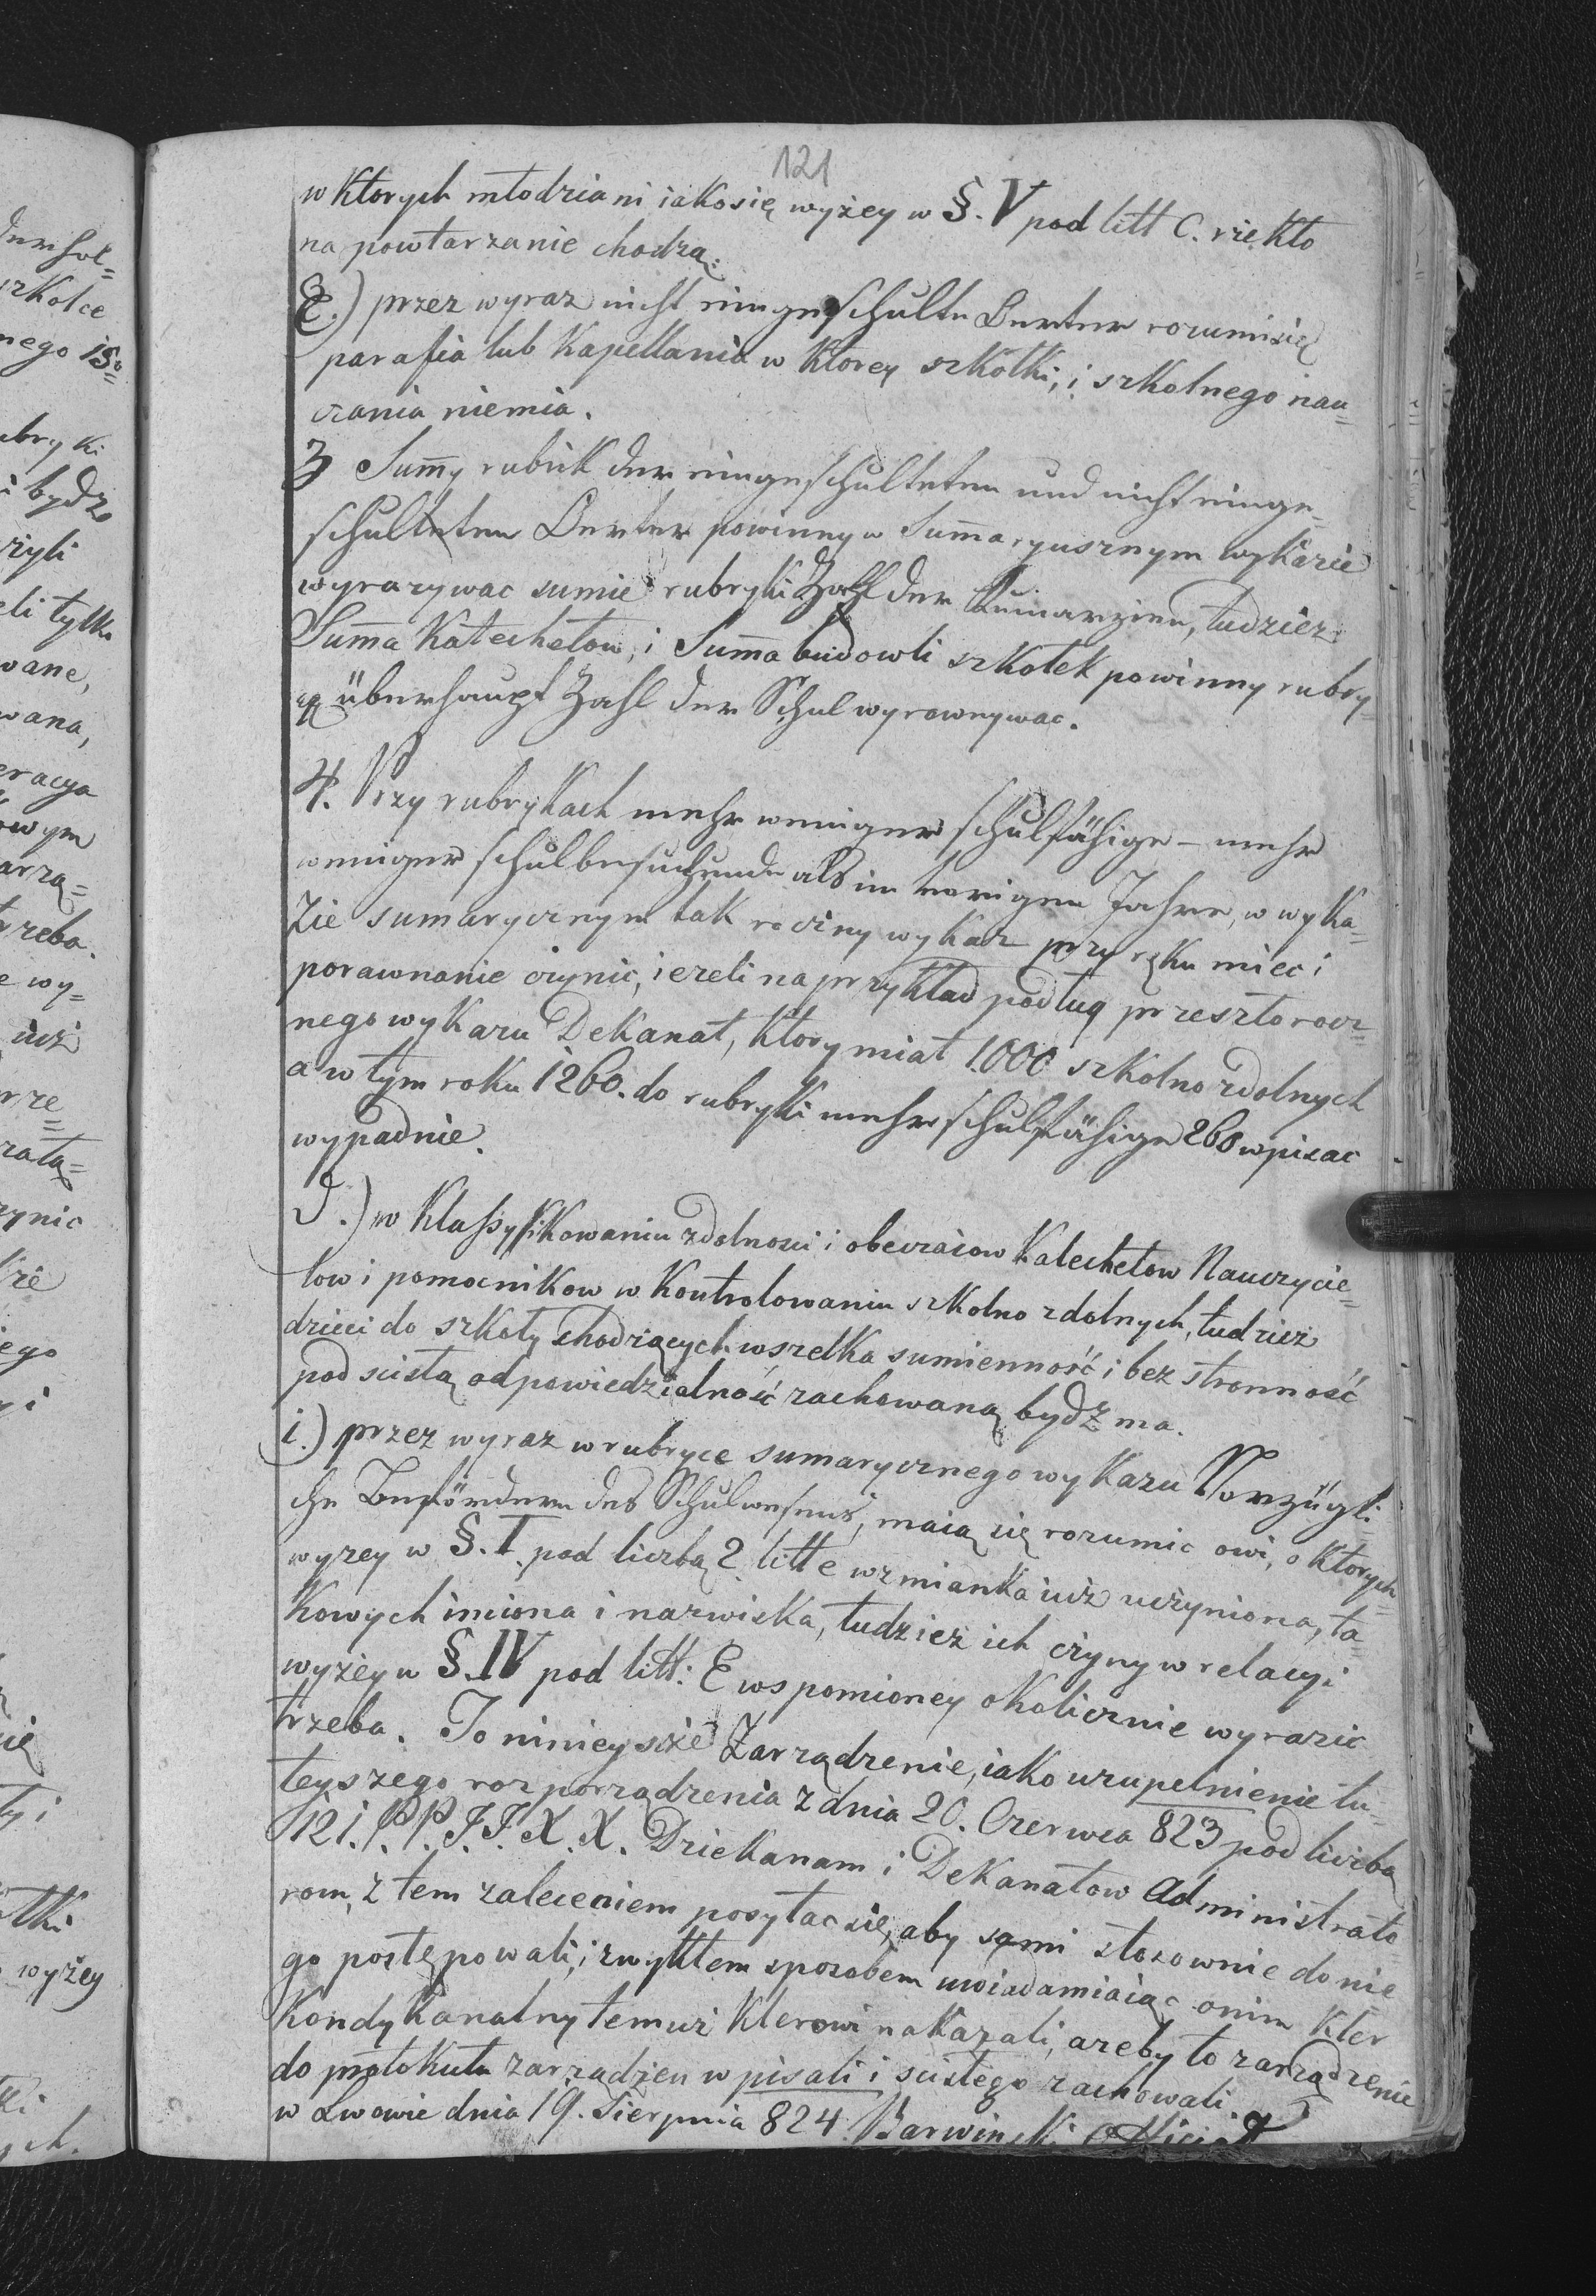 121
w ktorych młodziani iako się wyżey w §. V pod litt C. rzekło
na powtarzanie chodzą.
E.) przez wyraz nicht eingeschulte Oerter rozumi się
parafia lub kapellania w ktorey szkołki, i szkolnego nau=
czania niema.
3 Sum̄y rubrik der eingeschulteten und nicht einge=
schulteten Oerter powinny w Sum̄aryusznym wykazie
wyrazywac sumie rubryki Zahl der Curiarzien, tudzież
Sum̄a Katechetow, i Sum̄a budowli szkołek powinny rubry=
q überhaupt Zahl der Schul wyrownywac.
4. Przy rubrykach mehr weniger schulfähige – mehr
weniger schulbesuchende als im vorigen Jahre, w wyka=
zie sumarycznym tak roczny wykaz przy ręku miec i
porawnanie czynic, iezeli na przykład podług przeszłorocz=
nego wykazu Dekanat, ktory miał 1000 szkolno zdolnych
a w tym roku 1260. do rubryki mehr schulfähige 260 wpisac
wypadnie.
J.) w Klassyfikowaniu zdolności i obeczaiow Katechetow Nauczycie=
low i pomocnikow w kontrolowaniu szkolno zdolnych, tudziez
dzieci do szkoły chodzących wszelka sumienność i bez stronność
pod scisłą odpowiedzialność zachowaną bydź ma.
i.) przez wyraz w rubryce sumarycznego wykazu Vorzügli=
che Beförderer des Schulwesens, maią się rozumic owi, o ktorych
wyzey w §. I. pod liczbą 2. litt e wzmianka iuż uczyniona, ta=
kowych imiona i nazwiska, tudzież ich czyny w relacyi
wyżey w §. IV pod litt: E wspomioney okolicznie wyrazic
trzeba. To ninieysze Zarządzenie, iako uzupełnienie tu=
teyszego rozporządzenia z dnia 20. Czerwca 823 pod liczbą
121. P. P. J. J. X. X. Dziekanam i Dekanatow Administrato=
rom, z tem zaleceniem posyłac się, aby sami stosownie do nie=
go postępowali, i zwykłem sposobem uwiadamiaiąc onim kler
kondykanalny temuż klerowi nakazali, azeby to zarządzenie
do protokułu zarządzen wpisali i scisłego zachowali.
w Lwowie dnia 19. Sierpnia 824 Barwinski Official